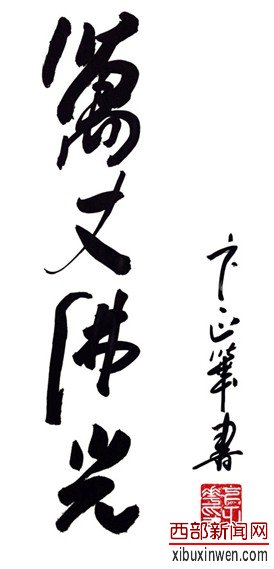 萬丈佛光
卞正華書
西部新闻网
xibuxinwen.com